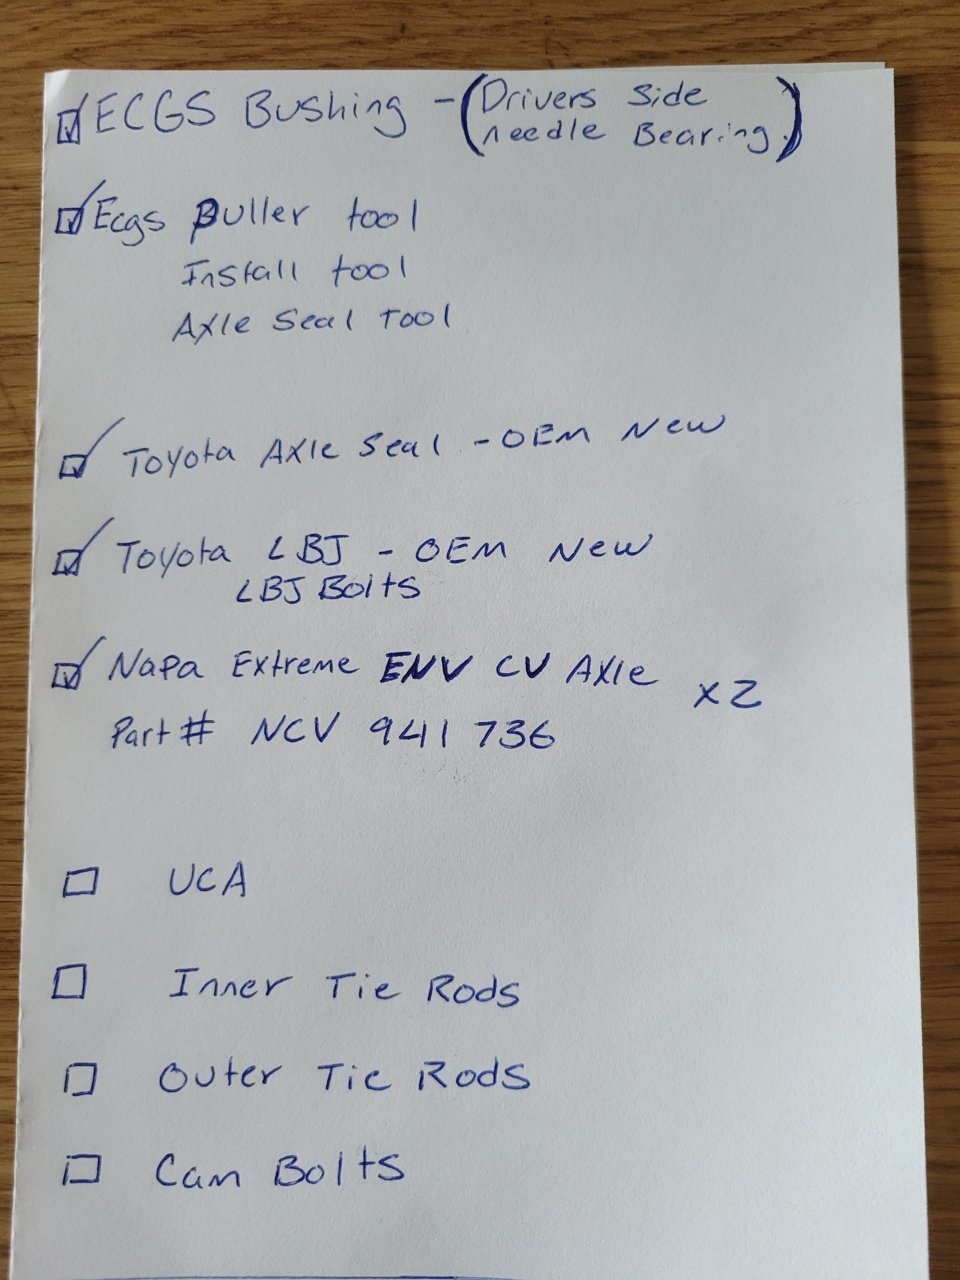 ECGS Bushing - (Drivers Side
needle Bearing)
Ecgs Puller tool
Install tool
Axle Seal Tool
Toyota Axle Seal - OEM New
Toyota LBJ - OEM New
LBJ Bolts
Napa Extreme ENV CV Axle x2
Part# NCV 941 736
UCA
Inner Tie Rods
Outer Tie Rods
Cam Bolts